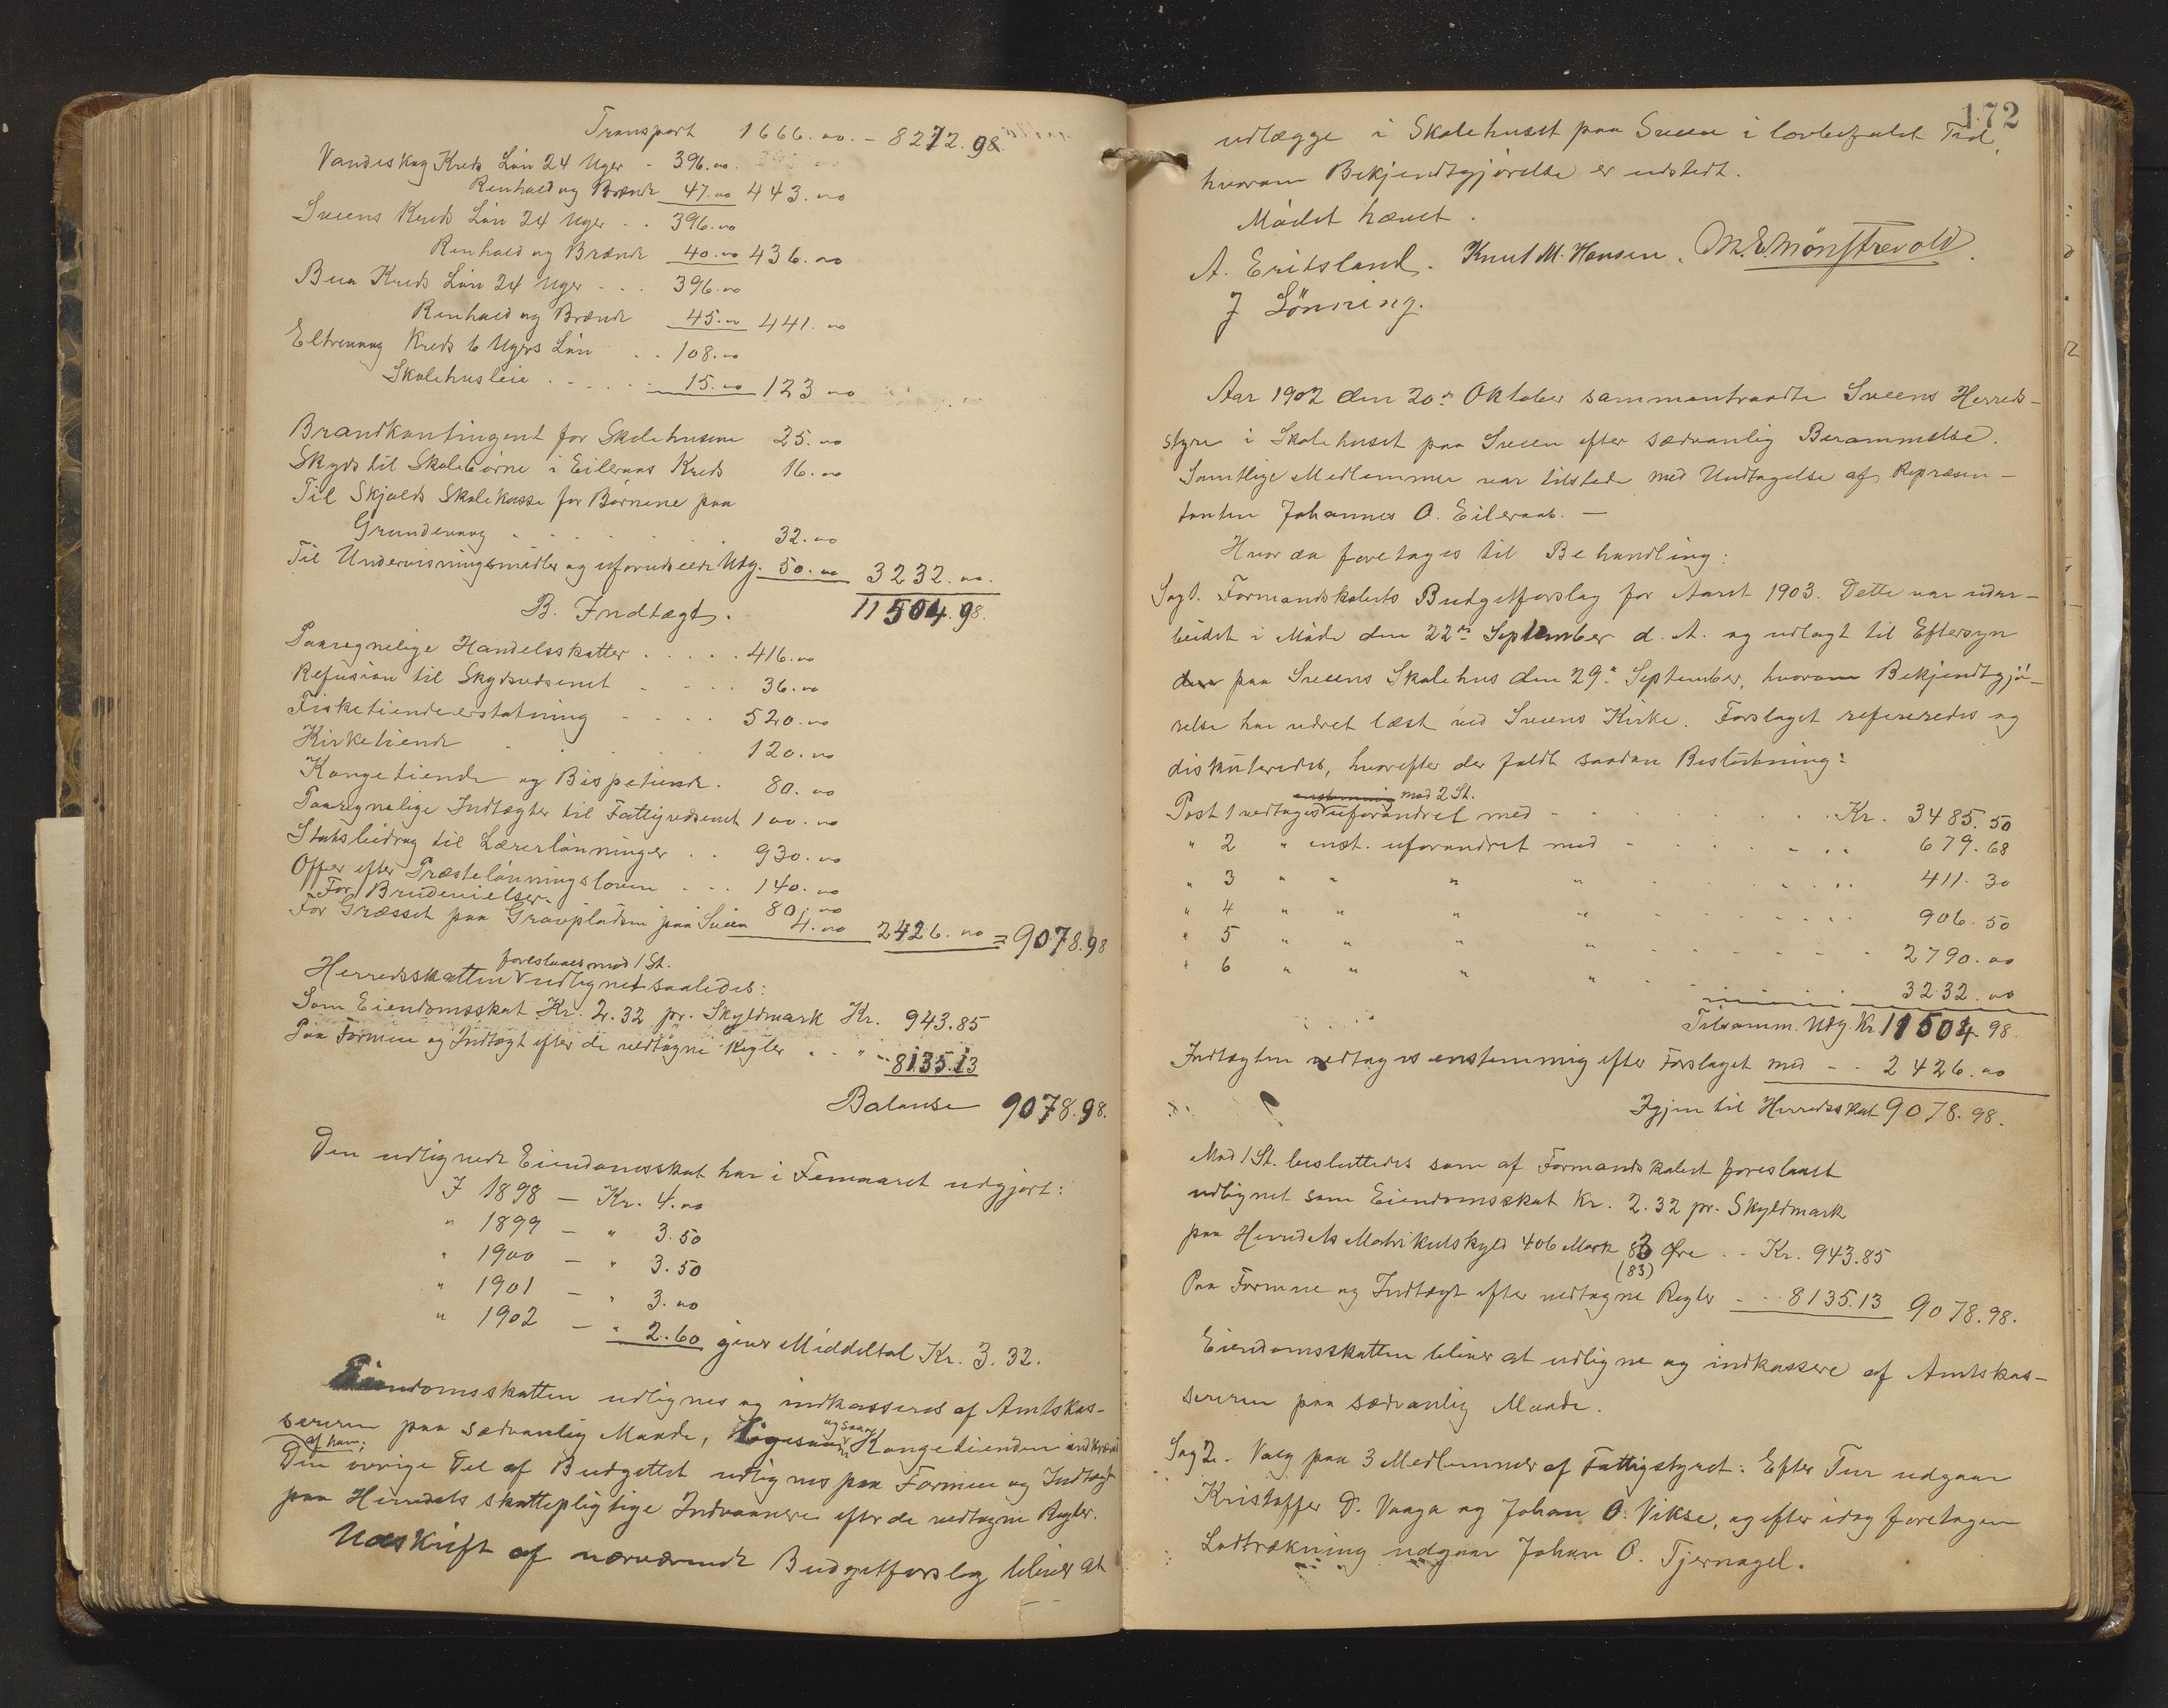 Transport 1666.00. - 8272.98
Vandeskog Kreds Løn 24 Uger - 396.00.
Renhold og Brænde 47.00 443.00
Sveens Kreds Løn 24 Uger - - 396.00
Renhold og Brænde 40.00 436.00
Bua Kreds Løn 24 Uger - - - 396.00
Renhold og Brænde 45.00 441.00
Eltrevaag Kreds 6 Ugers Løn . . 108.00
Skolehusleie . . . . . 15.00 123.00
Brandkontingent for Skolehusene 25.00
Skyds til Skolebørne i Eileraas Kreds 16.00
Til Skjolds Skolekasse for Børnene paa
Grundevaag . . . . . . 32.00
Til Undervisningsmidler og uforudseede Udg. 50.00 3232.00.
11504.98.
B. Indtægt.
Paaregnelige Handelsskatter . . . . . 416.00
Refusion til Skydsvæsenet - - - - 36.00
Fisketiendeerstatning - - - - 520.00
Kirketiende . . . . . 120.00
Kongetiende og Bispetiende. 80.00
Paaregnelige Indtægter til Fattigvæsenet 100.00
Statsbidrag til Lærerlønninger . . 930.00
Offer efter Præstelønningsloven - - - 140.00
For Brudevielser. 80.00
For Græsset paa Gravpladsen paa Sveen 4.00 2426.00 = 9078.98
foreslaaes mod 1 St.
Herredsskatten udlignet saaledes:
Som Eiendomsskat Kr. 2.32 pr. Skyldmark Kr. 943.85
Paa Formue og Indtægt efter de vedtagne Regler . . " - 8135.13
Balanse 9078.98.
Den udlignede Eiendomsskat har i Femaaret udgjort:
I 1898 - Kr. 4.00
" 1899 - " 3.50
" 1900 - " 3.50
" 1901 - " 3.00
" 1902 - " 2.60 giver Middeltal Kr. 3.32.
Eiendomsskatten udlignes og indkasseres af Amtskas-
ogsaa
sereren paa sædvanlig Maade, Kongetienden indkræves
af ham;
Den øvrige Del af Budgettet udlignes paa Formue og Indtægt
paa Herredets skattepligtige Indvaanere efter de vedtagne Regler.
Udskrift af nærværende Budgetforslag bliver at
172
udlægge i Skolehuset paa Sveen i lovbefalet Tid,
hvorom Bekjendtgjørelse er udstedt.
Mødet hævet.
A. Eritsland. Knut M. Hansen. M. E. Mønstrevold.
J Lönning.
Aar 1902 den 20de Oktober sammentraadte Sveens Herreds-
styre i Skolehuset paa Sveen efter sædvanlig Berammelse.
Samtlige Medlemmer var tilstede med Undtagelse af Repræsen-
tanten Johannes O. Eileraas. -
Hvor da foretages til Behandling:
Sag 1. Formandskabets Budgetforslag for Aaret 1903. Dette var udar-
beidet i Møde den 22de September d. A. og udlagt til Eftersyn
den paa Sveens Skolehus den 29de September, hvorom Bekjendtgjø-
relse har været læst ved Sveens Kirke. Forslaget refereredes og
diskuteredes, hvorefter der faldt saadan Beslutning:
enstemmig mod 2 St.
Post 1 vedtages uforandret med - . . . . . . . Kr. 3485.50
" 2 " enst. uforandret med - - - - . . 679.68
" 3 " " " " . . . . . . 411.30
" 4 " " " " - - - - - 906.50
" 5 " " " " - - - - - 2790.00
" 6 " " " " - - - - 3232.00
Tilsamm. Udg. Kr. 11504.98.
Indtægten vedtages enstemmig efter Forslaget med - - 2426.00
Igjen til Herredsskat 9078.98.
Mod 1 St. besluttedes som af Formandskabet foreslaaet
udlignet som Eiendomsskat Kr. 2.32 pr. Skyldmark
paa Herredets Matrikulskyld 406 Mark 83 Øre . . Kr. 943.85
(83)
Paa Formue og Indtægt efter vedtagne Regler - - - 8135.13 9078.98.
Eiendomsskatten bliver at udligne og indkassere af Amtskas-
sereren paa sædvanlig Maade.
Sag 2. Valg paa 3 Medlemmer af Fattigstyret: Efter Tur udgaar
Kristoffer D. Vaaga og Johan O. Vikse, og efter idag foretagen
Lodtrækning udgaar Johan O. Tjernagel.